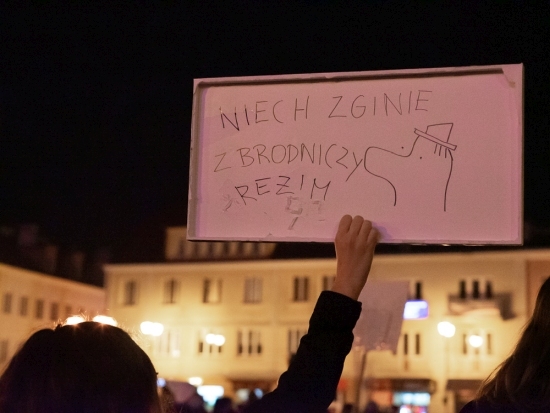 NIECH ZGINIE
ZBRODNICZY
REZIM